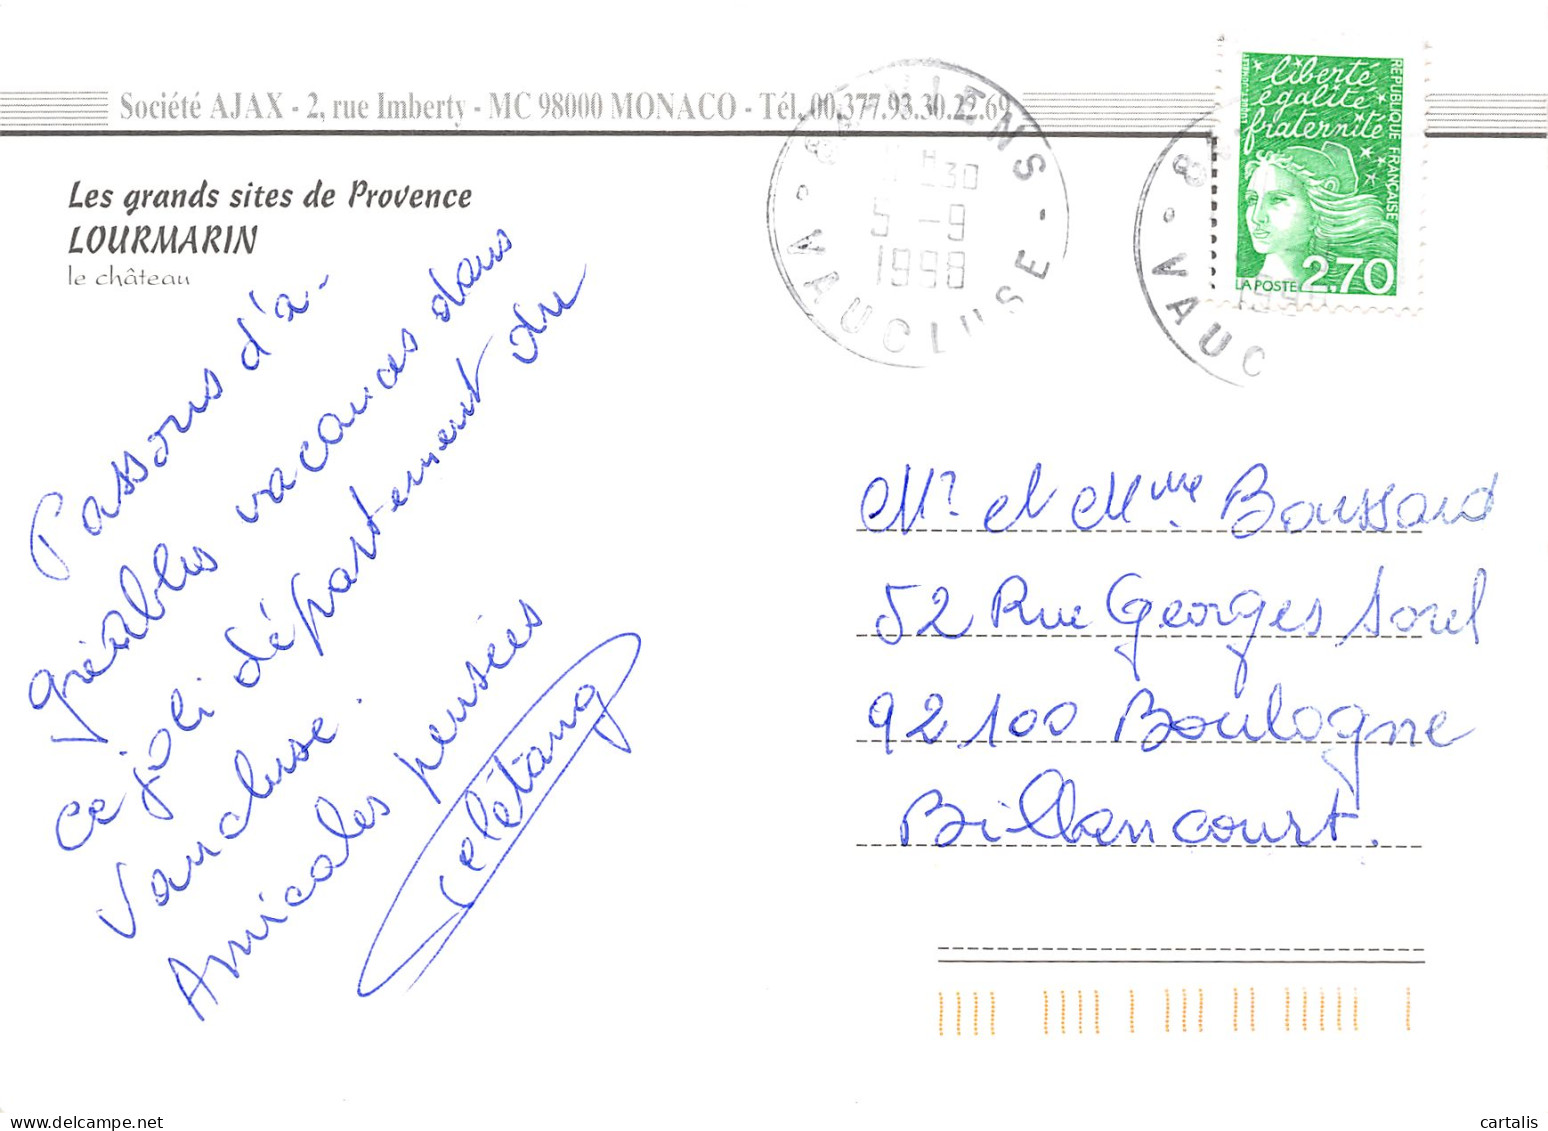 Société AJAX - 2, rue Imberty - MC 98000 MONACO - Tél. 00.377.93.30.22.69
Les grands sites de Provence
LOURMARIN
le château
Passons d'a-
gréables vacances dans
ce joli département du
Vaucluse.
Amicales pensées
VAUCLUSE
30
5 -9
1998
VAUC
liberté
égalité
fraternité
REPUBLIQUE FRANÇAISE
LA POSTE 2,70
Mr et Mme Boussard
52 Rue Georges Sorel
92100 Boulogne
Billancourt.
cartalis